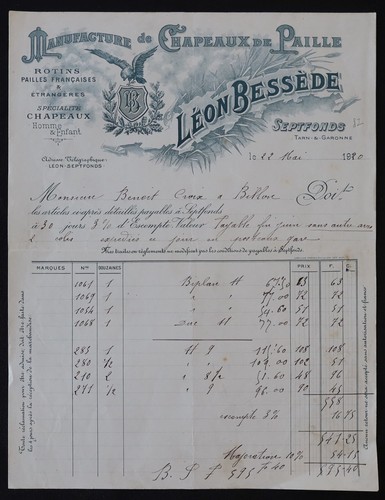 MANUFACTURE de CHAPEAUX DE PAILLE
ROTINS
PAILLES FRANÇAISES
&
ÉTRANGÈRES
SPÉCIALITÉ
CHAPEAUX
Homme
& Enfant
LB
LÉON BESSÈDE
SEPTFONDS
TARN-&-GARONNE
Adresse Télégraphique:
LÉON-SEPTFONDS
le 22 Mai 1920
Monsieur Benoit Croix à Doit
les articles ci-après détaillés payables à Septfonds
à 30 jours 3% d'Escompte Valeur Payable fin juin sans autre avis
2 colis expédiés ce jour en gare
Nos traites ou règlements ne modifient pas les conditions de payables à Septfonds.
MARQUES Nos DOUZAINES PRIX F. F.
1061 1 63 63
1069 1 " " 77.00 72 72
1 " " 51 51
1068 1 77.00 72 72
285 1 H 9 108 108
280 1/2 " 9 102 51
210 2 " 8 1/2 48 96
271 1/2 " 9 96.00 90 45
558
escompte 3% 16.75
541.25
Majoration 10% 54.15
B. P. F 595 40 595.40
Toute réclamation pour être admise, doit être faite dans
les 8 jours après la réception de la marchandise.